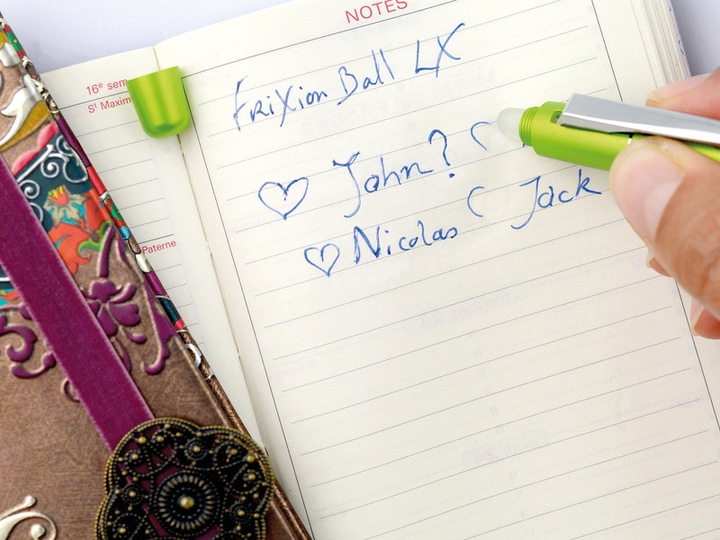 NOTES
16e sem
St Maxim
FriXion Ball LX
John? (
Paterne
Nicolas ( Jack